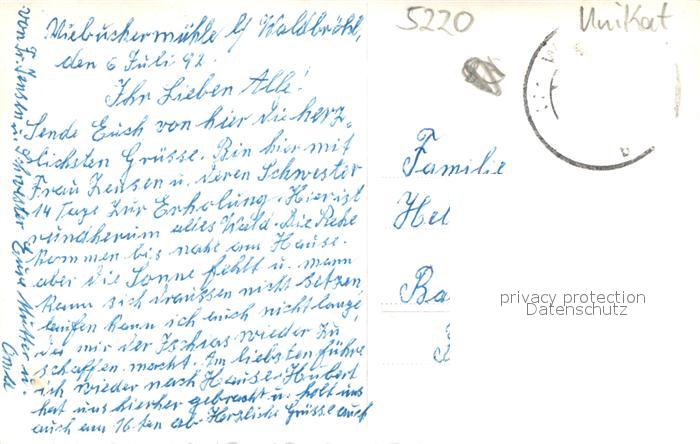 5220
Unikat
Niebuckermühle b/ Waldbröhl,
den 6 Juli 92.
Ihr Lieben Alle!
Sende Euch von hier die herz-
lichsten Grüsse. Bin hier mit
Frau Zensen u. deren Schwester
14 Tage zur Erholung. Hier ist
rundherum alles Wald. Die Rehe
kommen bis nahe am Hause.
aber die Sonne fehlt u. mann
kann sich draussen nicht setzen,
laufen kann ich auch nicht lange
da mir der Ischias wieder zu
schaffen macht. Am liebsten führe
ich wieder nach Hause. Hubert
hat uns hierher gebracht u. holt uns
auch am 16ten ab. Herzliche Grüsse auch
von Fr. Zensen u. Schwester Eure Mutter u.
Omi
Familie
Hel
Ba
privacy protection
Datenschutz